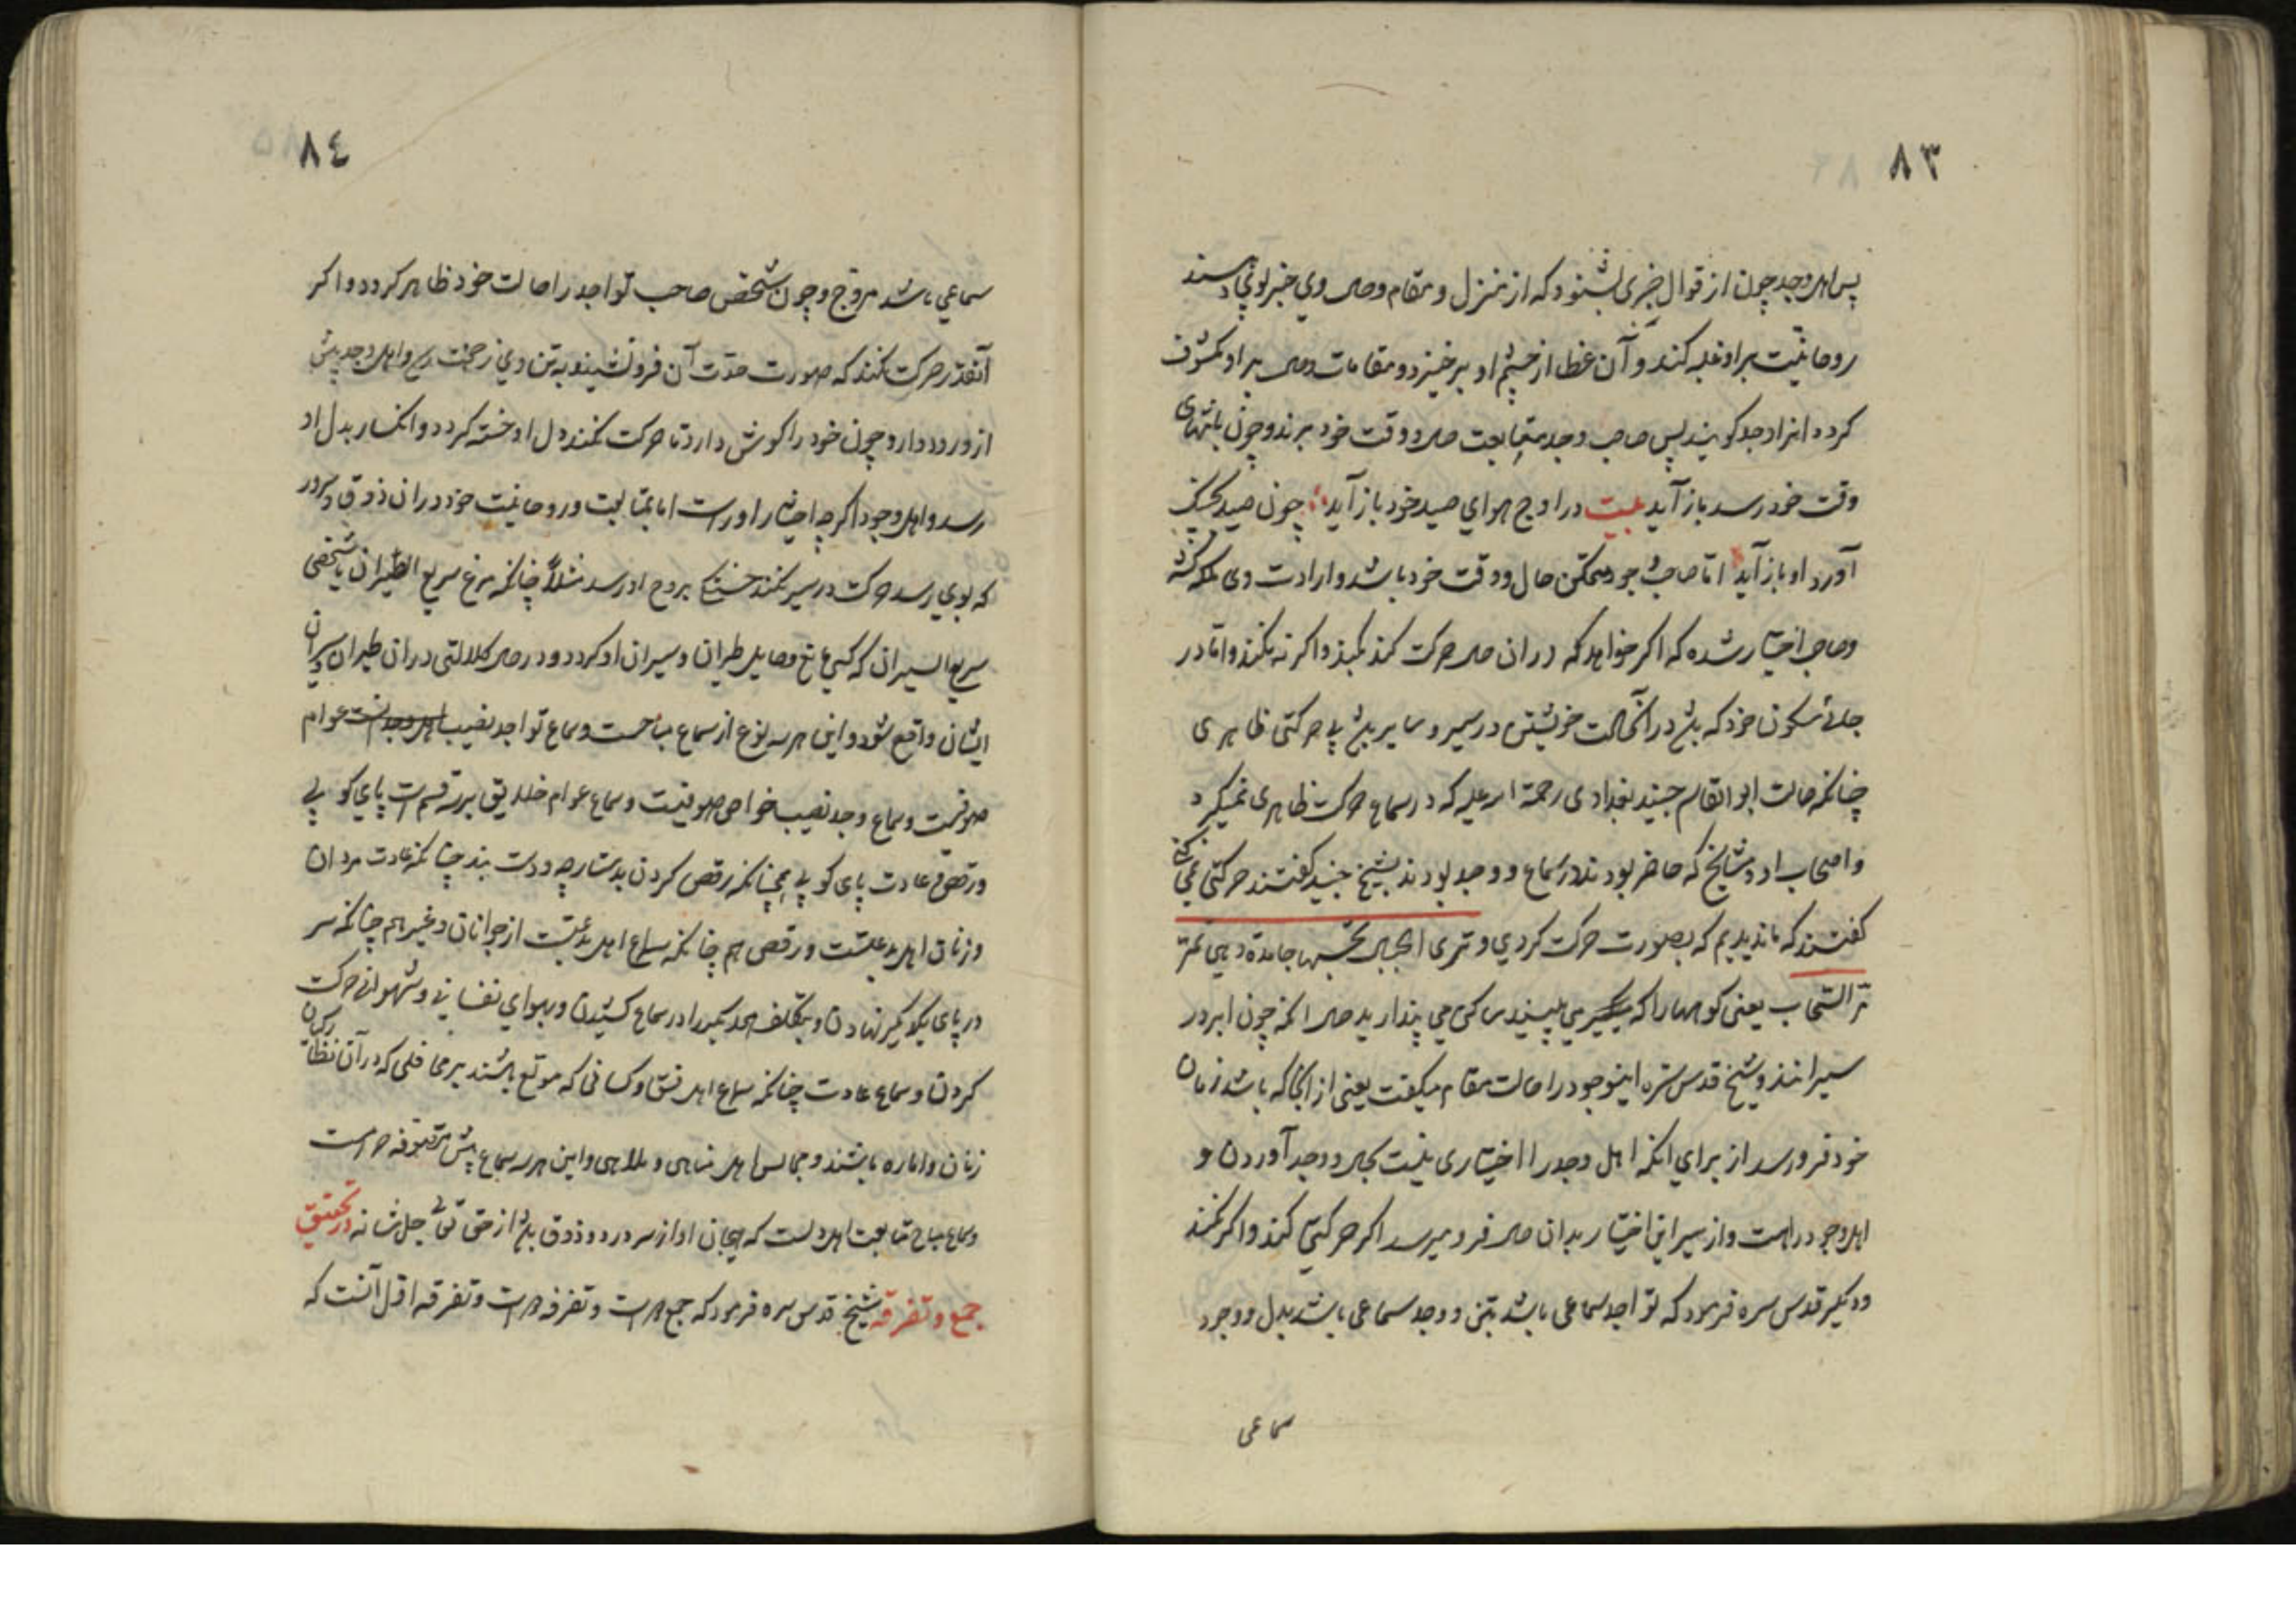 ٨٣
پس اهل وجد چون از قوال خبری بشنود که از منزل و مقام وصل وی خبر بوی رسند
روحانیت بر او غلبه کند و آن غطا از چشم او برخیزد و مقامات وصل بر او مکشوف
کردد انرا وجد کویند پس صاحب وجد بمتابعت حال و وقت خود برند و چون بانتهای
وقت خود رسد باز آید بیت در اوج هوای صید خود باز آید چون صید بجنک
آورد او باز آید اما صاحب وجود متمکن حال و وقت خود باشد و ارادت وی ملک کشته
و صاحب اختیار شده که اکر خواهد که در ان حال حرکت کند بکند و اکر نه نکند و اما در
حالت سکون خود که باشد در آنحالت خویشتن در سیر و سایر باشد بی حرکتی ظاهری
چنانکه حالت ابو القاسم جنید بغدادی رحمة الله علیه که در سماع حرکت ظاهری نمیکرد
و اصحاب او و مشایخ که حاضر بودند در سماع و وجد بودند بشیخ جنید کفتند حرکتی نمی کنی
کفتند که ما ندیدیم که بصورت حرکت کردی و تری الجبال تحسبها جامدة وهی تمر
مر السحاب یعنی کوهها را که می بینید ساکن می پندارید حال انکه چون ابر در
سیرانند و شیخ قدس سره اینوجود را حالت مقام میکفت یعنی از انجا که باشد زمان
خود فرو رسد از برای انکه اهل وجد را اختیاری نیست بحال و وجد آوردن و
اهل وجود را هست و از سیر این اختیار بدان حال فرو میرسد اکر حرکتی کند و اکر نکند
و دیکر قدس سره فرمود که تواجد سماعی باشد بتن و وجد سماعی باشد بدل و وجود
سماعی
٨٤
سماعی باشد بروح و چون شخص صاحب تواجد را حالت خود ظاهر کردد و اکر
آنقدر حرکت نکند که صورت حدّت آن فرو نشیند به تن وی زحمت رسد و اهل وجد پیش
از ورود دارد و چون خود را کوش دارد تا حرکت نکند دل او خسته کردد و انکسار بدل او
رسد و اهل وجود اکر چه اختیار اوراست اما بمتابعت و روحانیت خود در ان ذوق و سرور
که بوی رسد حرکت در سیر نکند خستکی بروح او رسد مثلاً چنانکه مرغ سریع الطیران یا شخصی
سریع السیران که کسی مانع و حایل طیران و سیران او کردد و در حال کلالتی در ان طیران و سیران
ایشان واقع شود و این هر سه نوع از سماع مباحست و سماع تواجد نصیب عوام
صوفیست و سماع وجد نصیب خواص صوفیست و سماع عوام خلایق بر سه قسم است پای کوبی
و رقص و عادت پای کوبی همچنانکه رقص کردن بدستارچه و دست بند چنانکه عادت مردان
و زنان اهل بدعتست و رقص هم چنانکه سماع اهل بدعتست از جوانان و غیرهم چنانکه سر
در پای یکدیکر نهادن و بتکلف همدیکر را در سماع کشیدن و بهوای نفسانی و شهوانی حرکت
کردن و سماع عادت چنانکه سماع اهل فسق و کسانی که مولع باشند بر محافلی که در آن نظارکیان
زنان و اماره باشند و مجالس اهل مناهی و ملاهی و این هر سه سماع پیش متصوفه حرامست
و سماع مباح متابعت اهل دلست که هیجان او از سر درد و ذوق باشد از حق تعالی جل شانه در تحقیق
جمع و تفرقه شیخ قدس سره فرمود که جمع جمع است و تفرقه است و تفرقه اول آنست که